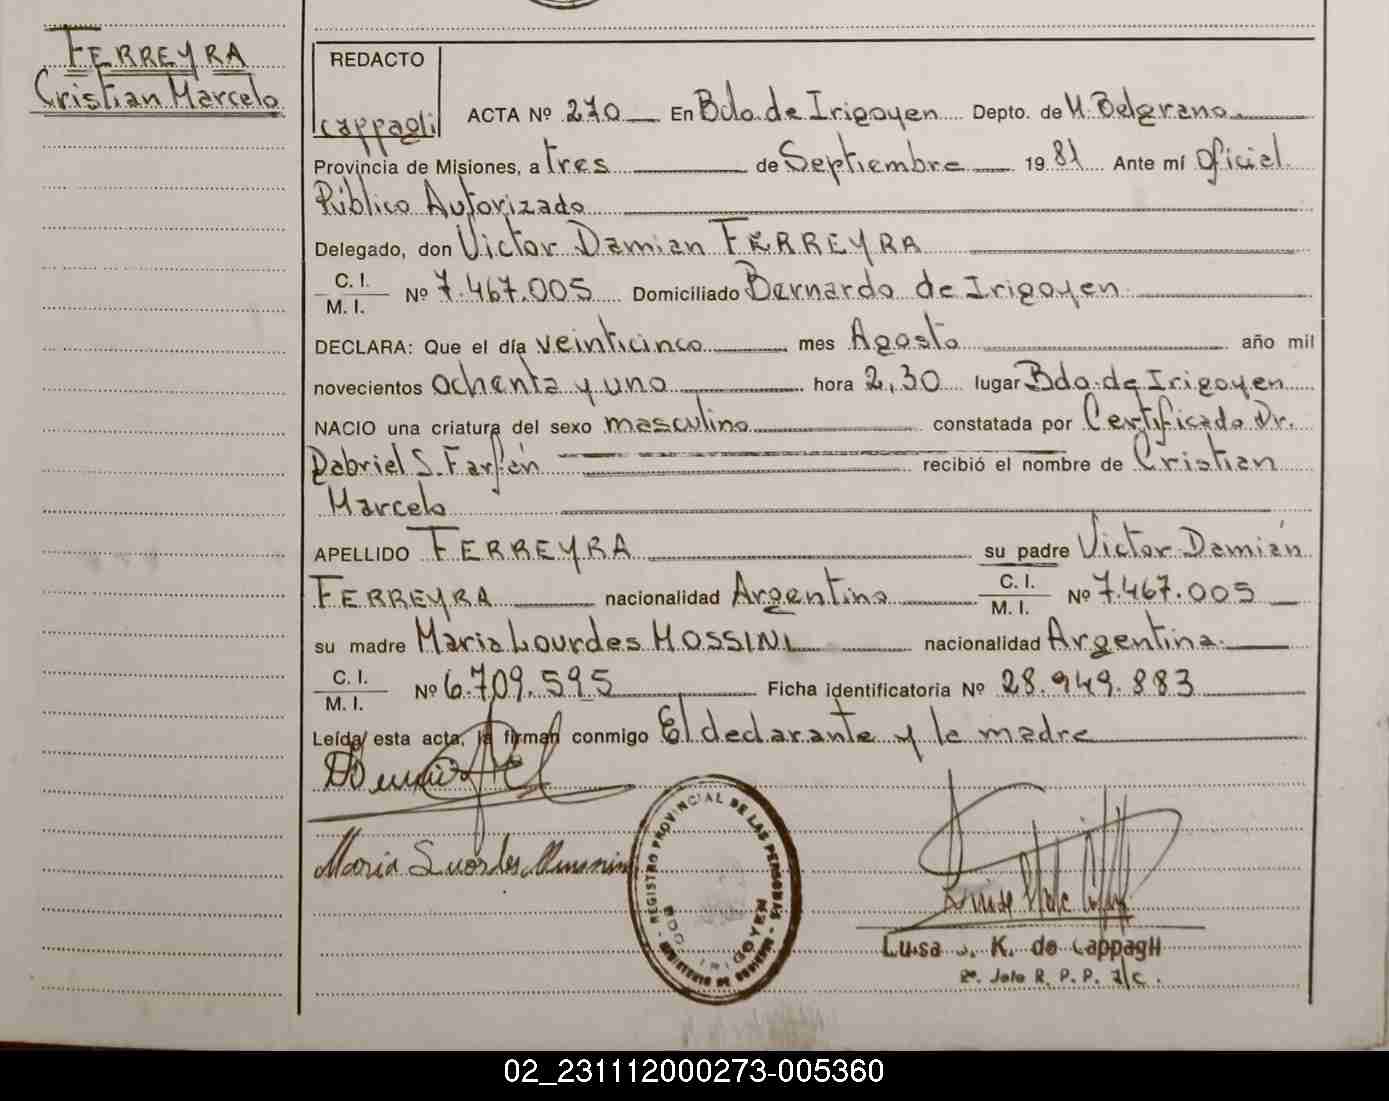 FERREYRA
Cristian Marcelo
REDACTO
cappagli
ACTA Nº 270 En Bdo. de Irigoyen Depto. de M. Belgrano
Provincia de Misiones, a tres de Septiembre 1981 Ante mí Oficial
Público Autorizado
Delegado, don Victor Damian FERREYRA
C. I.
M. I. Nº 7.467.005 Domiciliado Bernardo de Irigoyen
DECLARA: Que el día veinticinco mes Agosto año mil
novecientos ochenta y uno hora 2,30 lugar Bdo. de Irigoyen
NACIO una criatura del sexo masculino constatada por Certificado Dr.
Gabriel S. Farfán recibió el nombre de Cristian
Marcelo
APELLIDO FERREYRA su padre Victor Damián
FERREYRA nacionalidad Argentina C. I. M. I. Nº 7.467.005
su madre Maria Lourdes MOSSINI nacionalidad Argentina
C. I.
M. I. Nº 6.709.595 Ficha identificatoria Nº 28.949.883
Leída esta acta, la firman conmigo El declarante y la madre
REGISTRO PROVINCIAL DE LAS PERSONAS
BDO. IRIGOYEN
MINISTERIO DE GOBIERNO
Luisa J. K. de Cappagli
R. P. P. a/c.
02_231112000273-005360